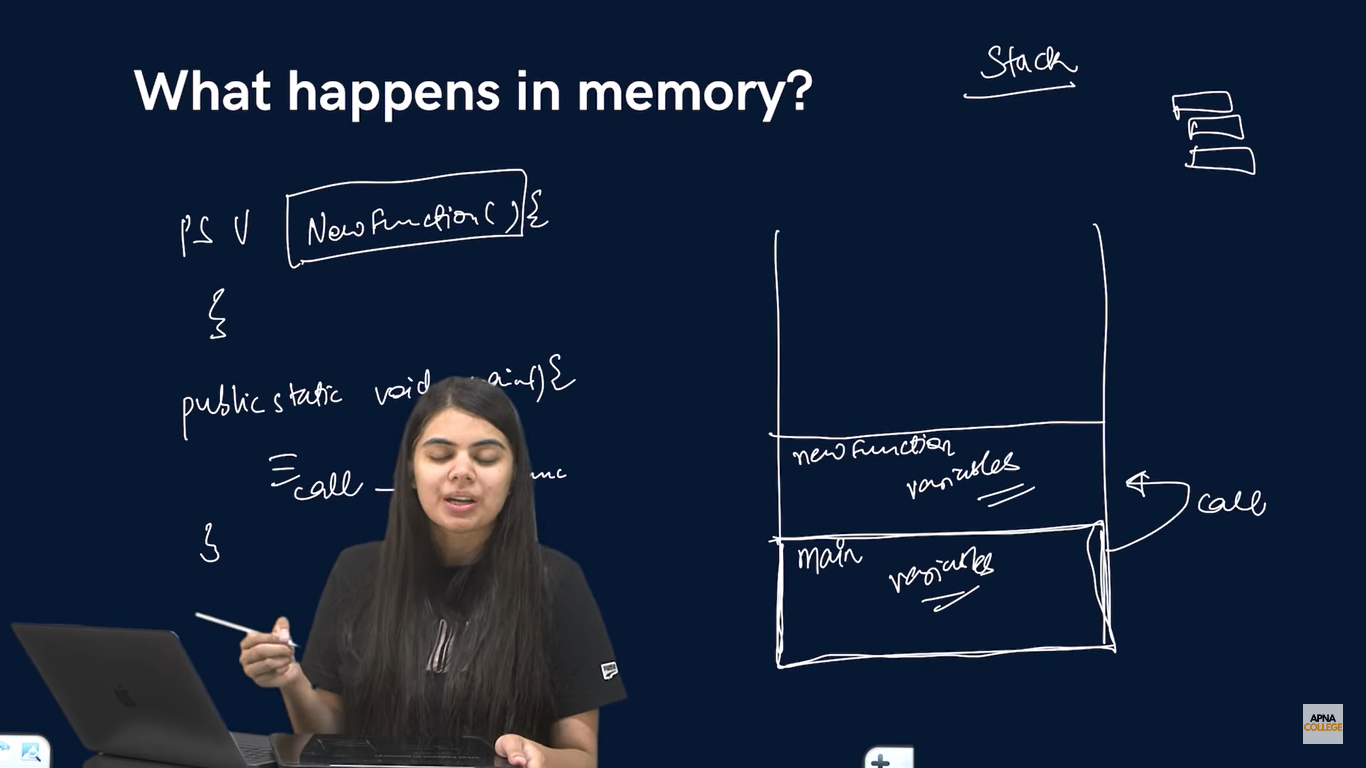 What happens in memory?
Stack
PS V NewFunction(){
}
public static void main(){
call
}
newFunction
variables
call
main
variables
APNA
COLLEGE